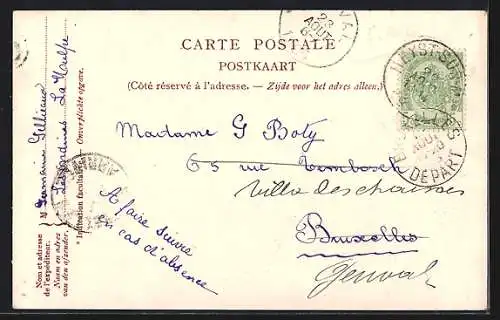 CARTE POSTALE
POSTKAART
(Côté réservé à l'adresse. — Zijde voor het adres alleen.)
Madame G Boty
65 rue Tenbosch
Villa des chasses
Bruxelles
Genval
A faire suivre
en cas d'absence
M Germaine
La Hulpe
* Indication facultative. — Onverplichte opgave.
Nom et adresse
de l'expéditeur.
Naam en adres
van den afzender.
23
AOUT
HEYST-SUR-MER
AOUT
DEPART